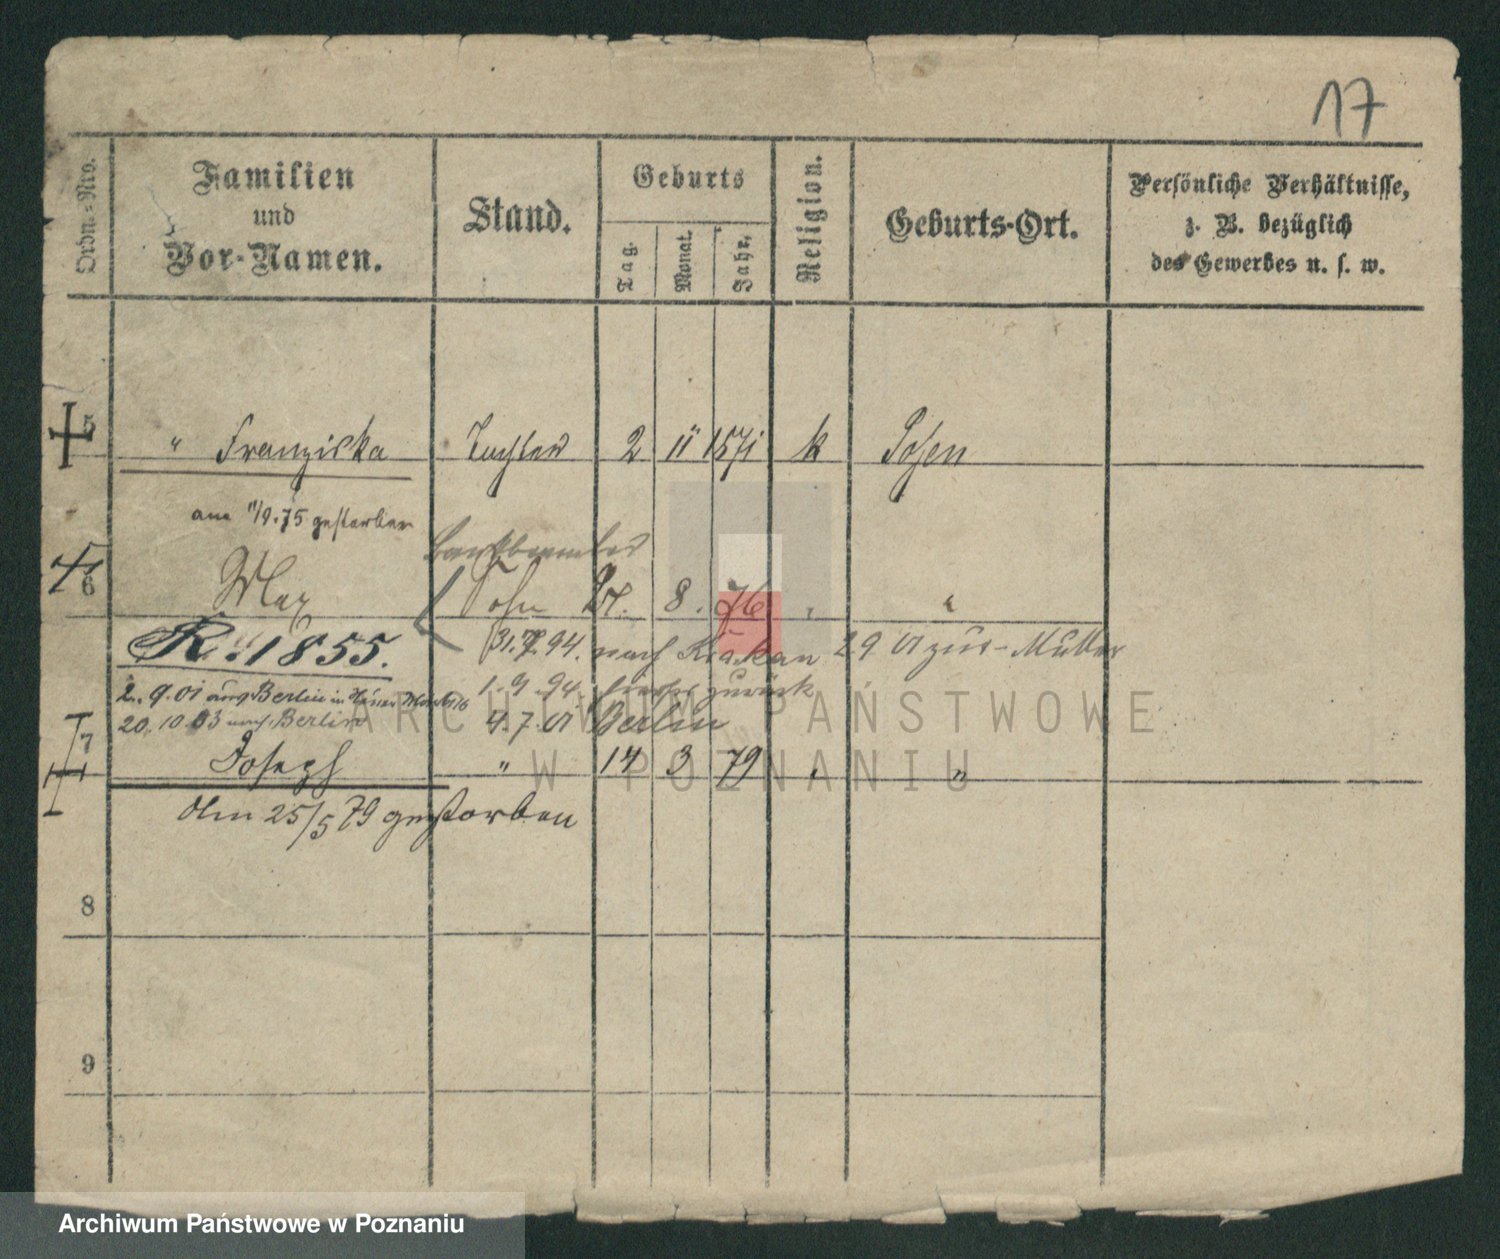 17
Ordn.-Nro.
Familien
und
Vor-Namen.
Stand.
Geburts
Tag.
Monat.
Jahr.
Religion.
Geburts-Ort.
Persönliche Verhältnisse,
z. B. bezüglich
des Gewerbes u. s. w.
5 " Franziska Tochter 2 11 1571 k Posen
am 11/9.75 gestorben
Bankbeamter
6 Max Sohn 8. 76 "
R. 1855. 31.7.94. nach Krakau 29 VI zur Mutter
2. 9. 01 aus Berlin in
1. 9. 94. zurück
20. 10. 03 nach Berlin
4. 7. 01 Berlin
7 Joseph " 14 3 79 "
Am 25/5 79 gestorben
8
9
ARCHIWUM PAŃSTWOWE
W POZNANIU
Archiwum Państwowe w Poznaniu